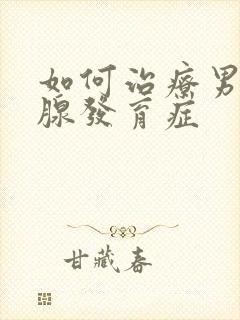 如何治療男
腺發育症
甘藏春